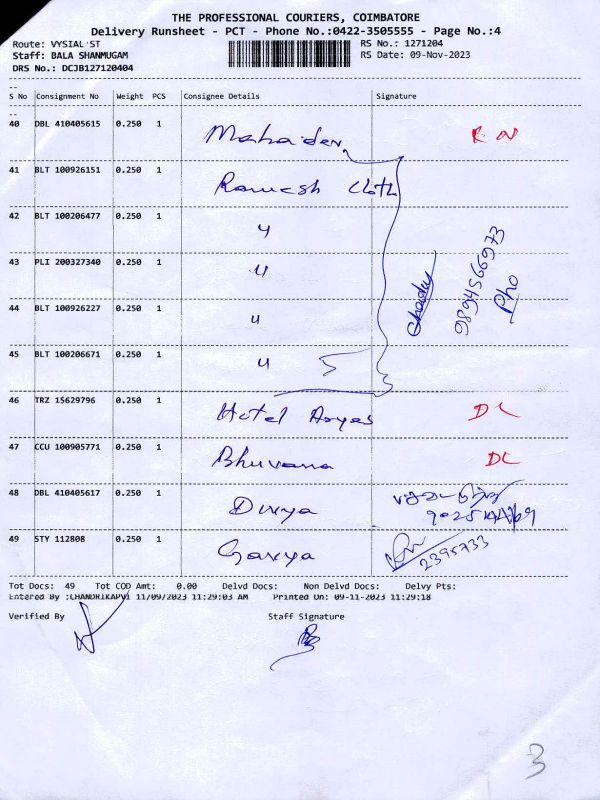 THE PROFESSIONAL COURIERS, COIMBATORE
Delivery Runsheet - PCT - Phone No.:0422-3505555 - Page No.:4
Route: VYSIAL ST RS No.: 1271204
Staff: BALA SHANMUGAM RS Date: 09-Nov-2023
DRS No.: DCJB127120404
S No Consignment No Weight PCS Consignee Details Signature
40 DBL 410405615 0.250 1 Mahadev RN
41 BLT 100926151 0.250 1 Ramesh Cloth
42 BLT 100206477 0.250 1 "
43 PLI 200327340 0.250 1 "
44 BLT 100926227 0.250 1 "
45 BLT 100206671 0.250 1 "
9894566973
Pho
46 TRZ 15629796 0.250 1 Hotel Aryas DL
47 CCU 100905771 0.250 1 Bhuvana DL
48 DBL 410405617 0.250 1 Divya
49 STY 112808 0.250 1 2395733
Tot Docs: 49 Tot COD Amt: 0.00 Delvd Docs: Non Delvd Docs: Delvy Pts:
Entered By :CHANDRIKAPVI 11/09/2023 11:29:03 AM Printed On: 09-11-2023 11:29:18
Verified By Staff Signature
3